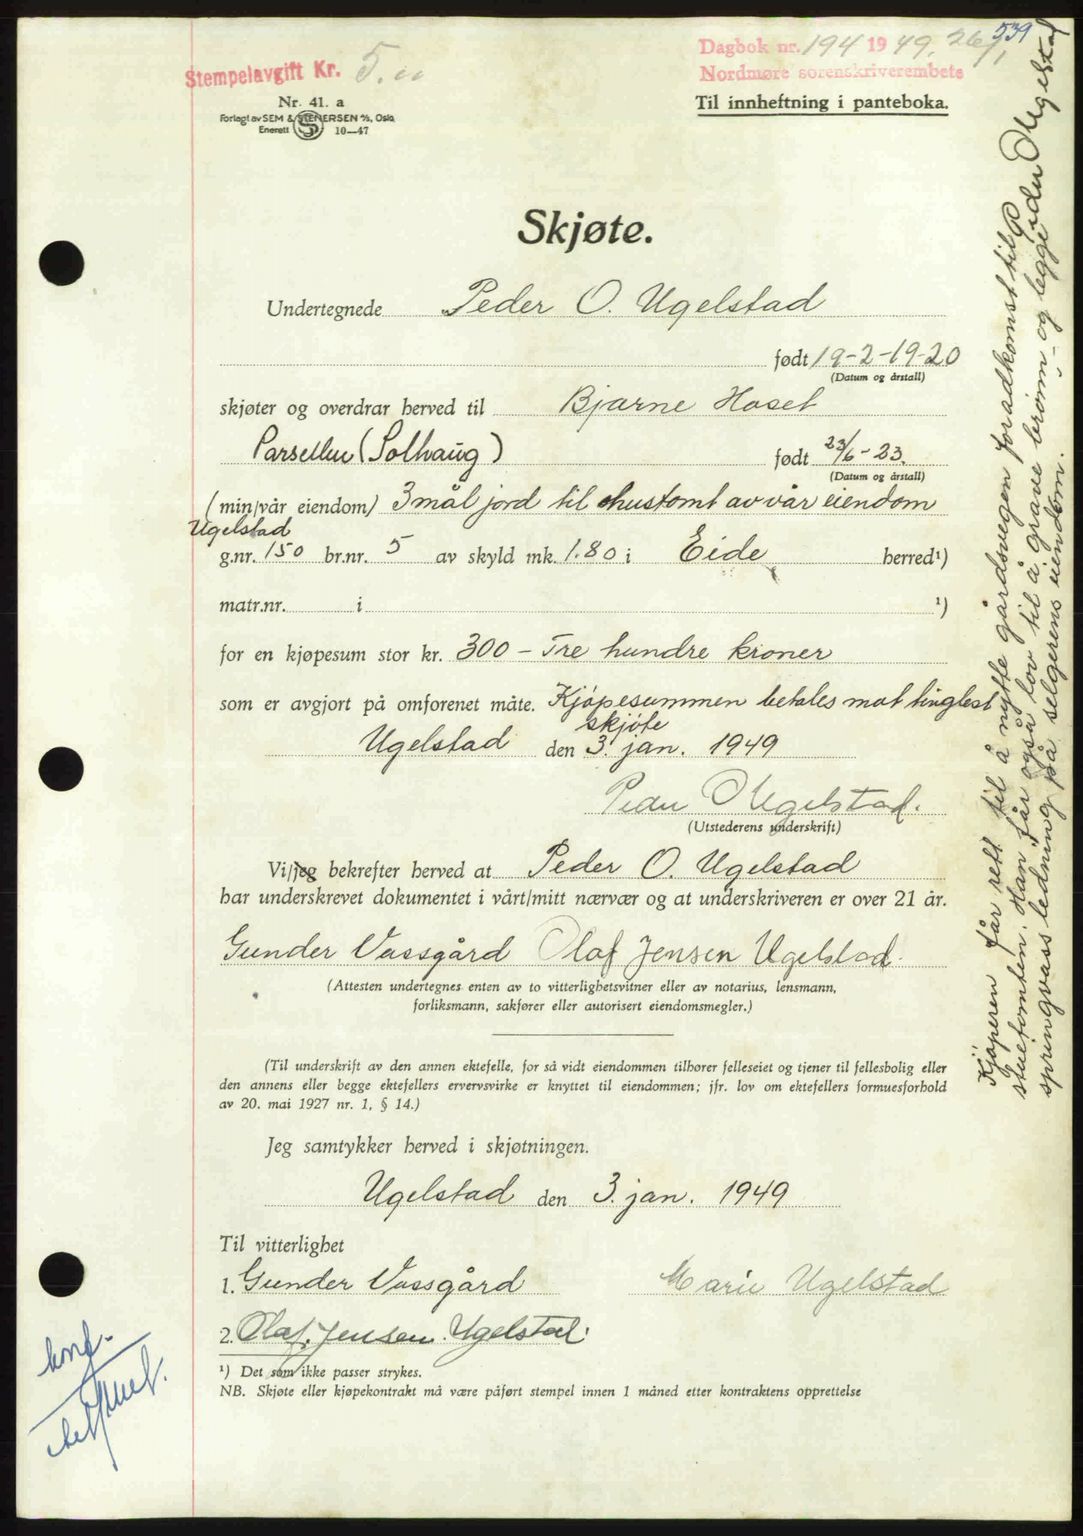 539
Stempelavgift Kr. 5.00
Dagbok nr. 194 1949. 26/1
Nordmøre sorenskriverembete
Nr. 41. a
Forlagt av SEM & STENERSEN A/S, Oslo
Enerett 10—47
Til innheftning i panteboka.
Skjøte.
Undertegnede Peder O. Ugelstad
født 19-2-19-20
(Datum og årstall)
skjøter og overdrar herved til Bjarne Haset
Parsellen (Solhaug) født 23/6-23.
(Datum og årstall)
(min/vår eiendom) 3 mål jord til hustomt av vår eiendom
Ugelstad
g.nr. 150 br.nr. 5 av skyld mk. 1.80 i Eide herred¹)
matr.nr. i ¹)
for en kjøpesum stor kr. 300 - Tre hundre kroner
som er avgjort på omforenet måte. Kjøpesummen betales mot tinglest
skjøte
Ugelstad den 3. jan. 1949
Peder O Ugelstad.
(Utstederens underskrift)
Vi/jeg bekrefter herved at Peder O. Ugelstad
har underskrevet dokumentet i vårt/mitt nærvær og at underskriveren er over 21 år.
Gunder Vassgård Olaf Jensen Ugelstad.
(Attesten undertegnes enten av to vitterlighetsvitner eller av notarius, lensmann,
forliksmann, sakfører eller autorisert eiendomsmegler.)
(Til underskrift av den annen ektefelle, for så vidt eiendommen tilhører felleseiet og tjener til fellesbolig eller
den annens eller begge ektefellers ervervsvirke er knyttet til eiendommen; jfr. lov om ektefellers formuesforhold
av 20. mai 1927 nr. 1, § 14.)
Jeg samtykker herved i skjøtningen.
Ugelstad den 3. jan. 1949
Til vitterlighet
1. Gunder Vassgård Marie Ugelstad
2. Olaf. Jensen. Ugelstad.
¹) Det som ikke passer strykes.
NB. Skjøte eller kjøpekontrakt må være påført stempel innen 1 måned etter kontraktens opprettelse
Kjøperen får rett til å nytte gårdsvegen for adkomst til
stuetomten. Han får også lov til å grave brønn og legge
springvass ledning på selgerens eiendom.
Peder O Ugelstad
konf.